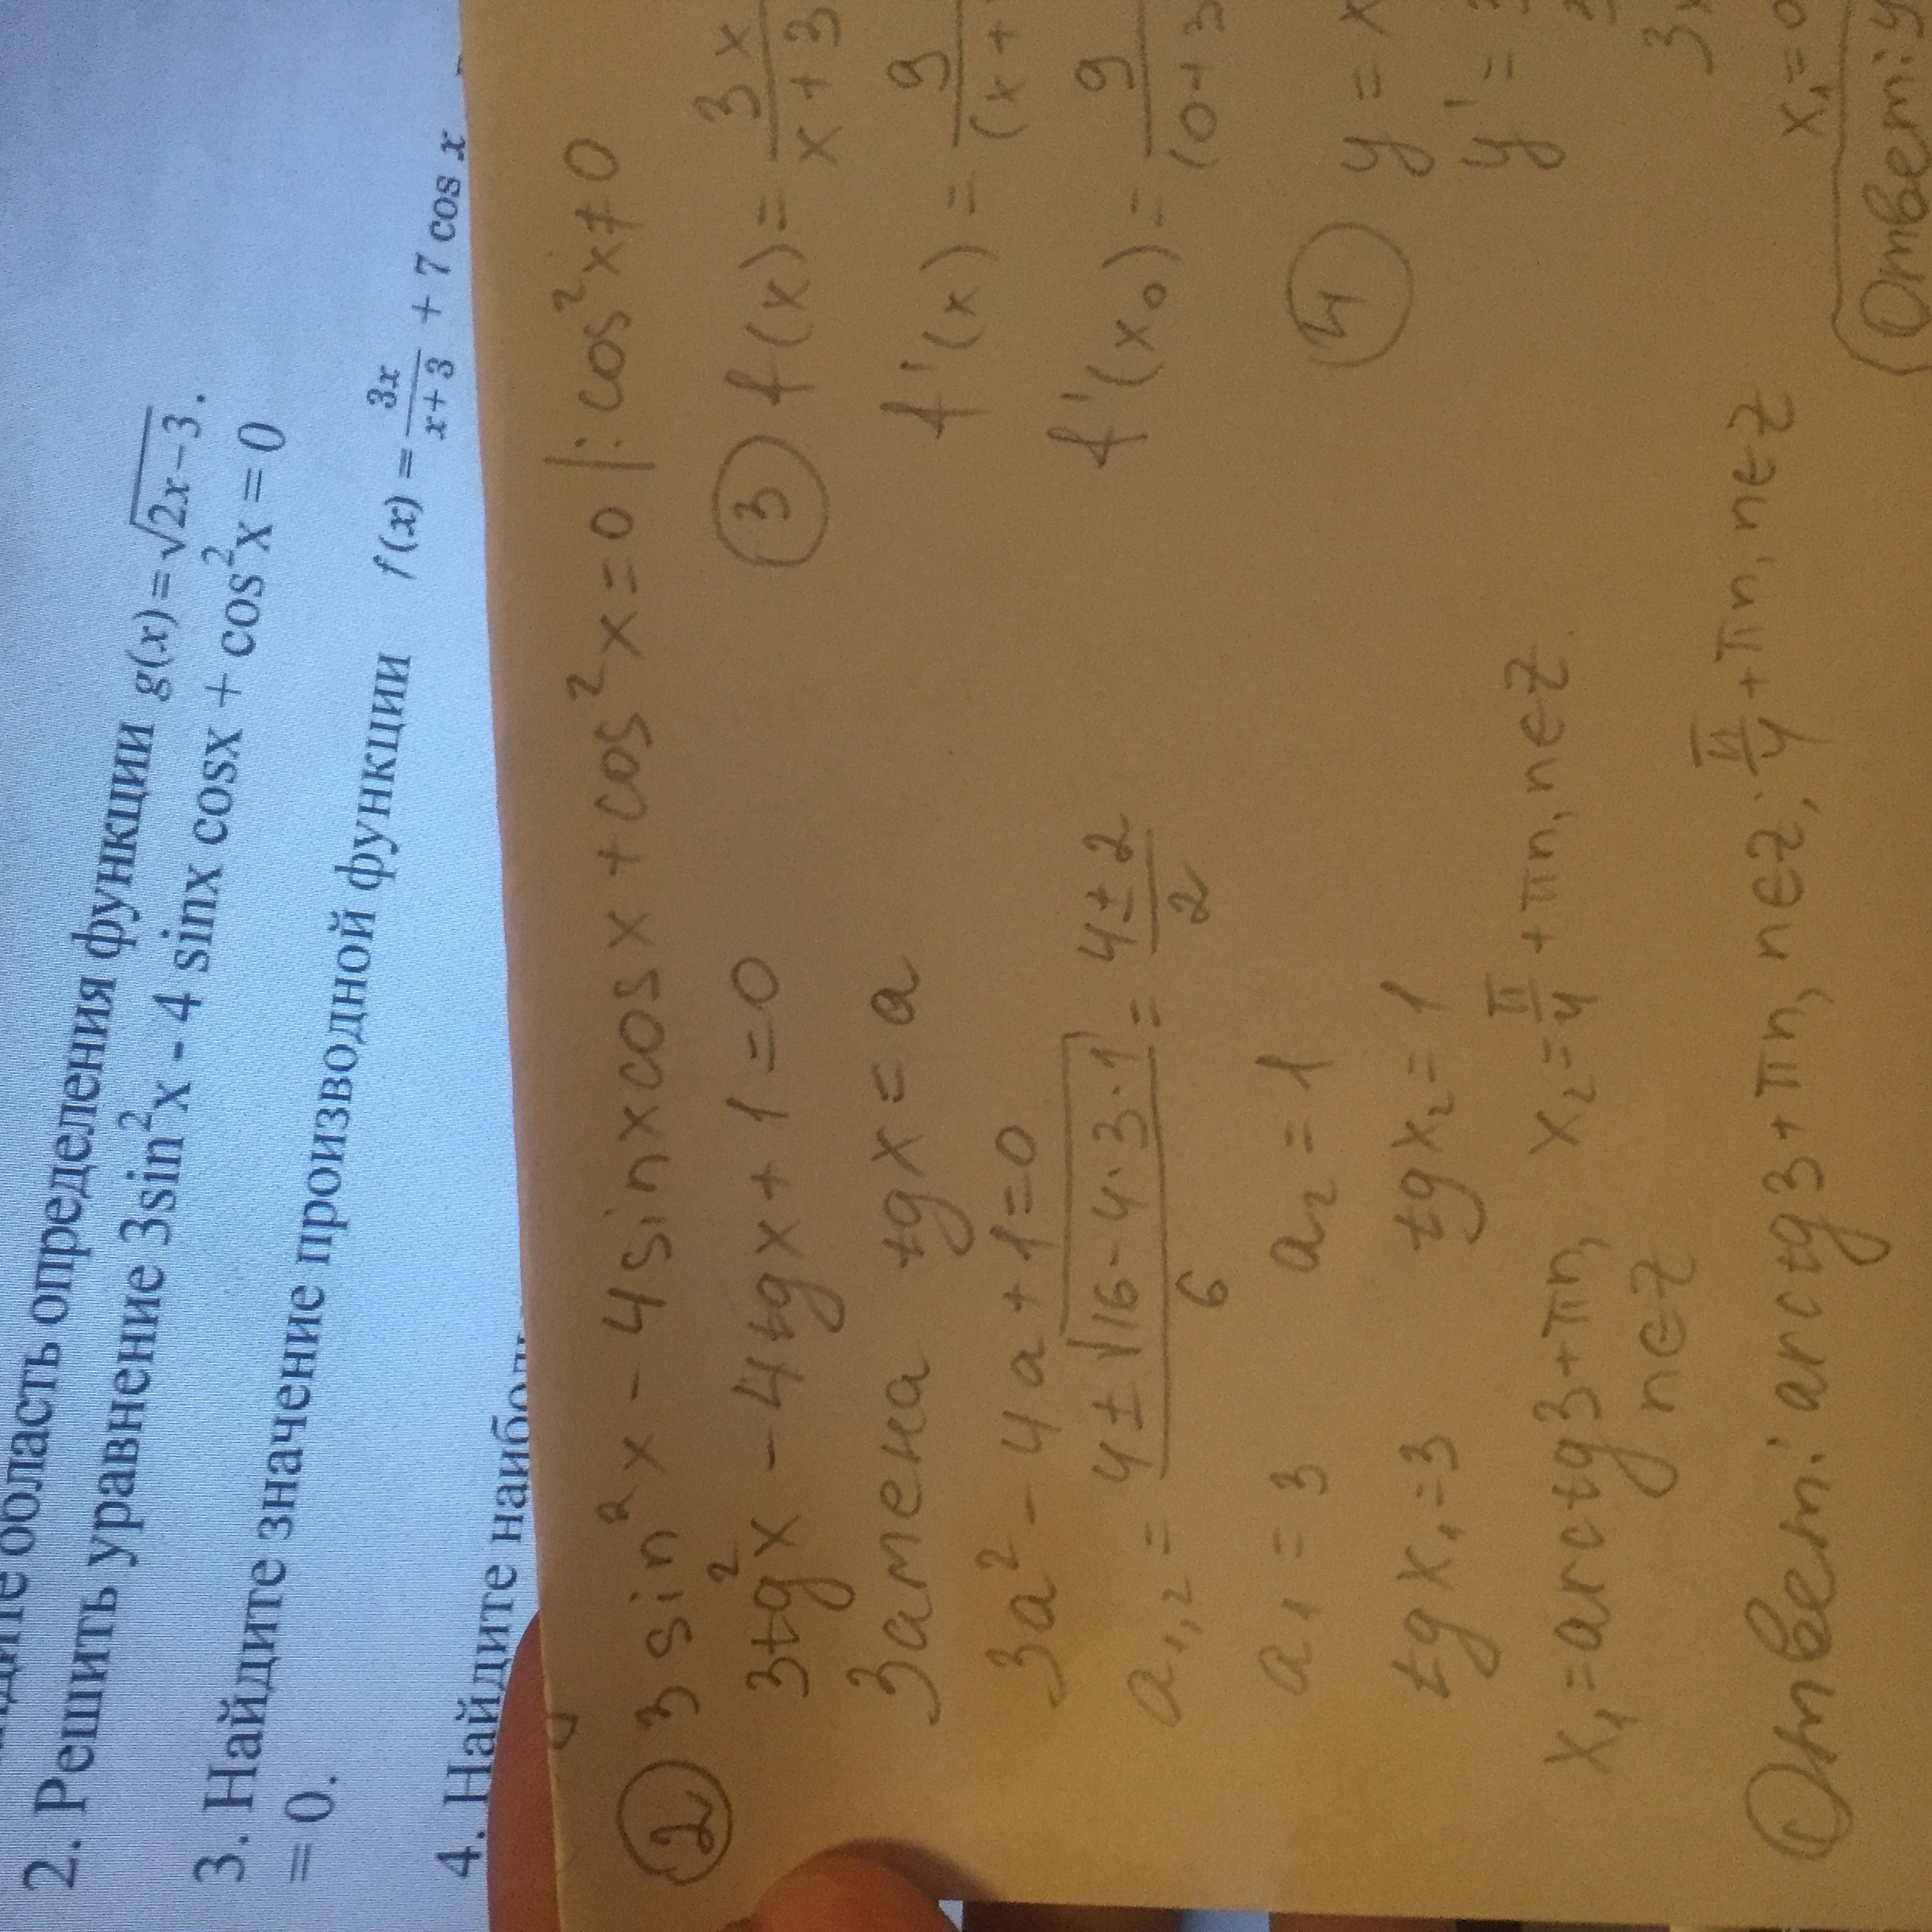 область определения функции g(x) = √2x−3.
2. Решить уравнение 3sin²x - 4 sinx cosx + cos²x = 0
3. Найдите значение производной функции f(x) = 3x/x+3 + 7 cos x
= 0.
4. Найдите
② 3 sin²x - 4 sinx cosx + cos²x = 0 |: cos²x ≠ 0
3tg²x - 4tgx + 1 = 0
Замена tgx = a
3a² - 4a + 1 = 0
a₁,₂ = 4 ± √16 - 4·3·1/6 = 4 ± 2/2
a₁ = 3 a₂ = 1
tg x₁ = 3 tg x₂ = 1
x₁ = arctg3 + πn, x₂ = π/4 + πn, n∈Z.
n∈Z
Ответ: arctg3 + πn, n∈Z; π/4 + πn, n∈Z
③ f(x) = 3x/x+3
f'(x) = 9/(x+
f'(x₀) = 9/(0+3
④ y = x
y' =
3x
x₁ = 0
Ответ: y